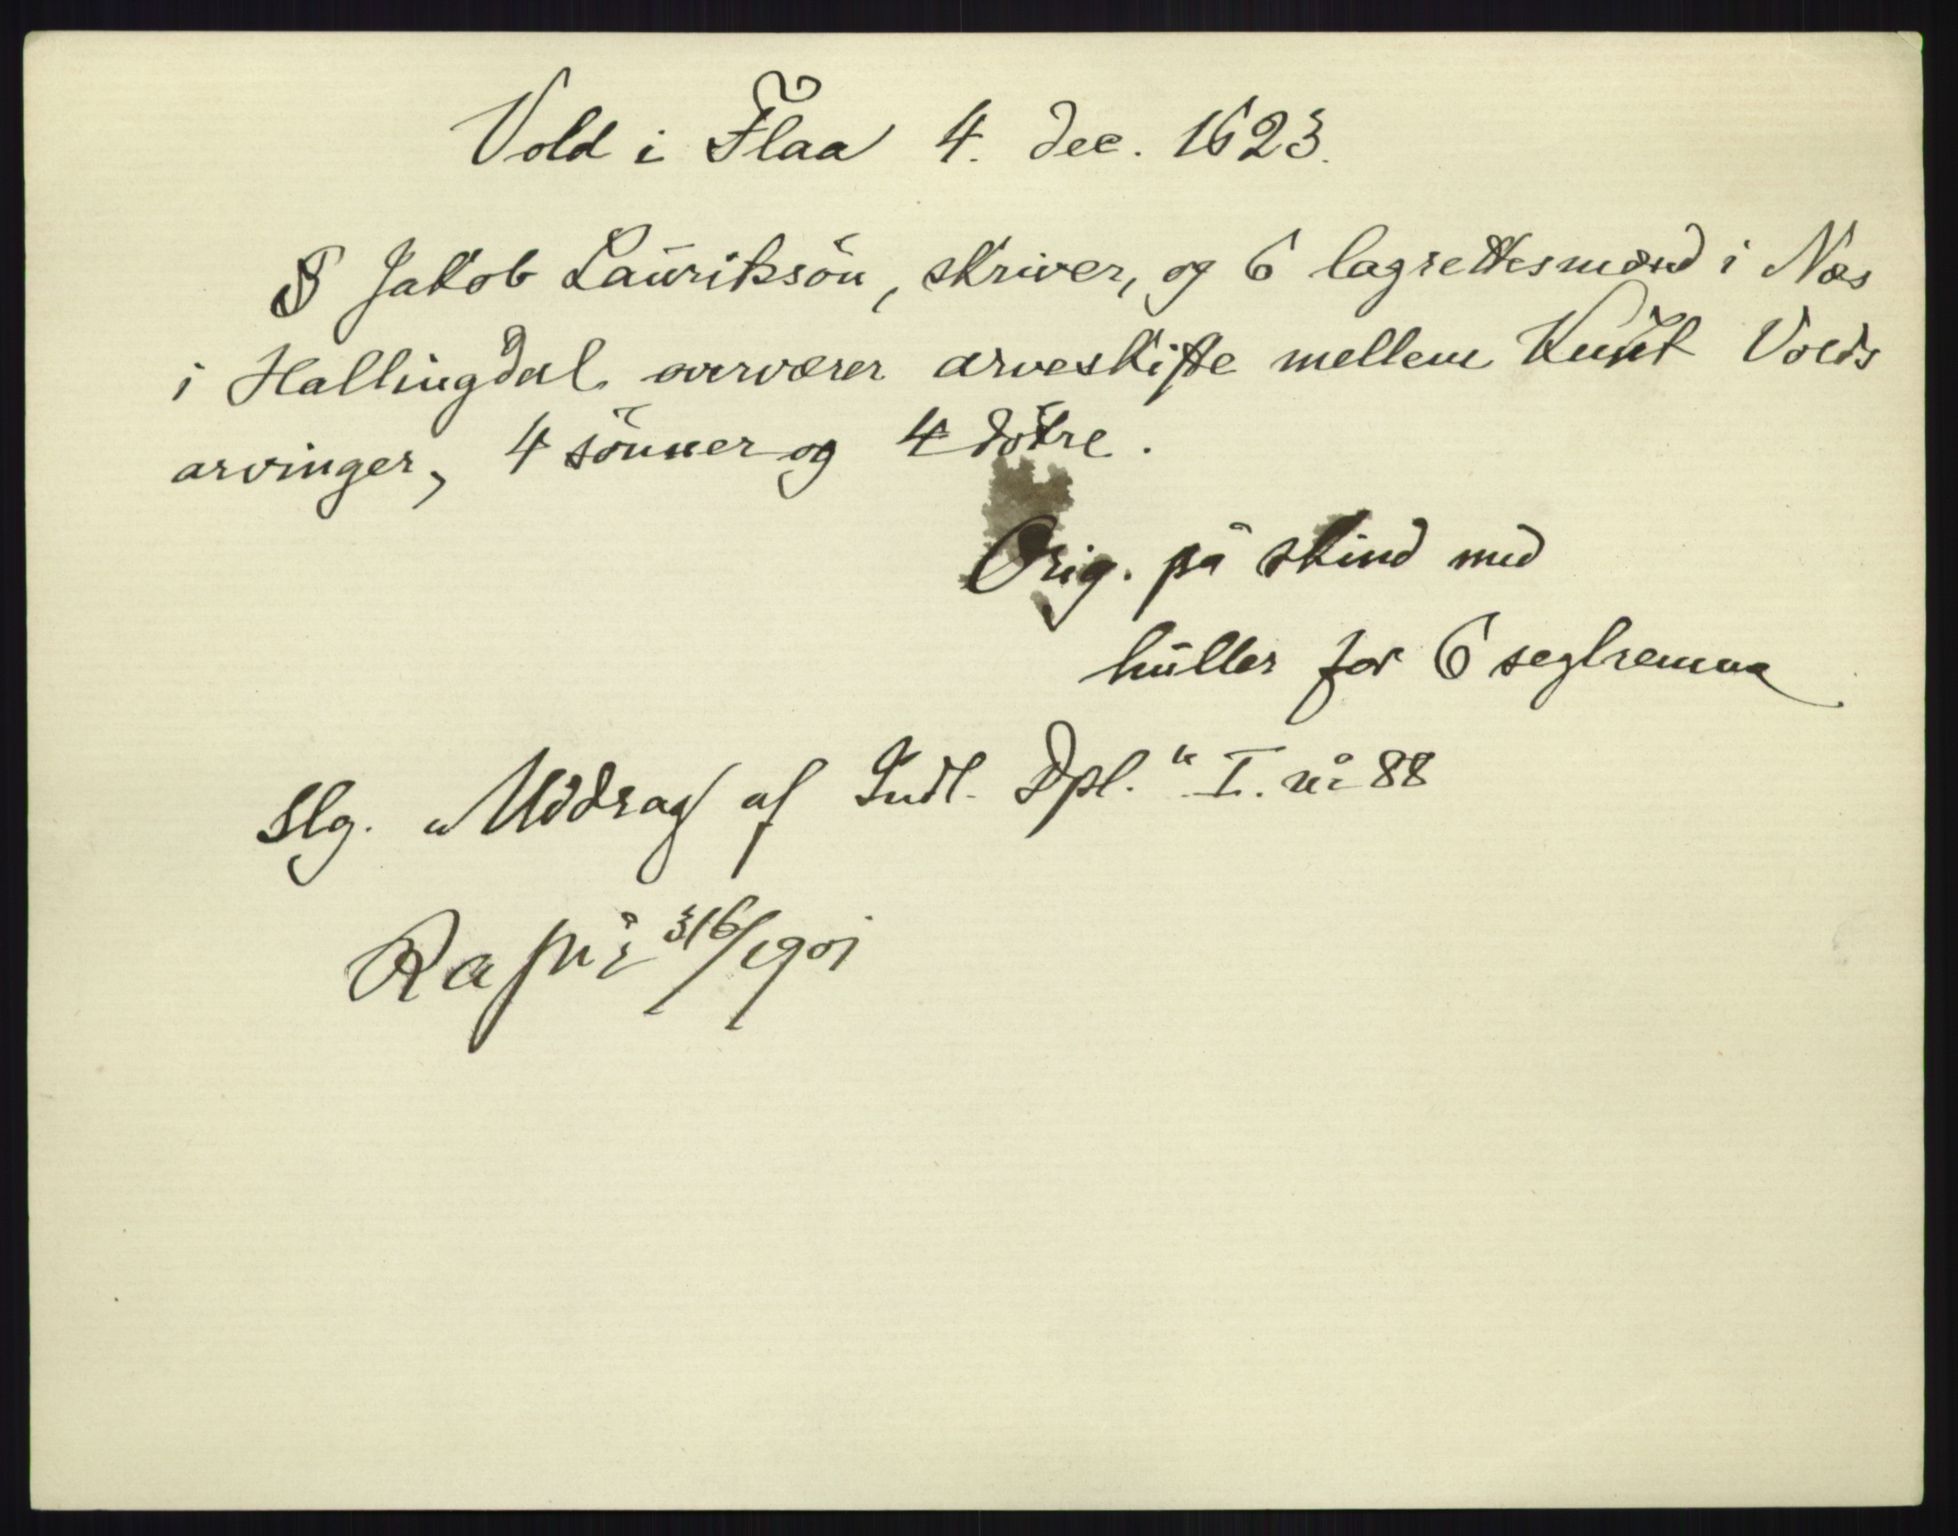 Vold i Flaa 4. dec. 1623.
Jakob Lauritssön, skriver, og 6 lagrettesmænd i Næs
i Hallingdal overværer arveskifte mellem Knut Volds
arvinger, 4 sönner og 4 dötre.
Orig. på skind med
huller for 6 seglremme
Slg. „Uddrag af Indl. Dpl.“ I. nr 88
Ra 316/1901